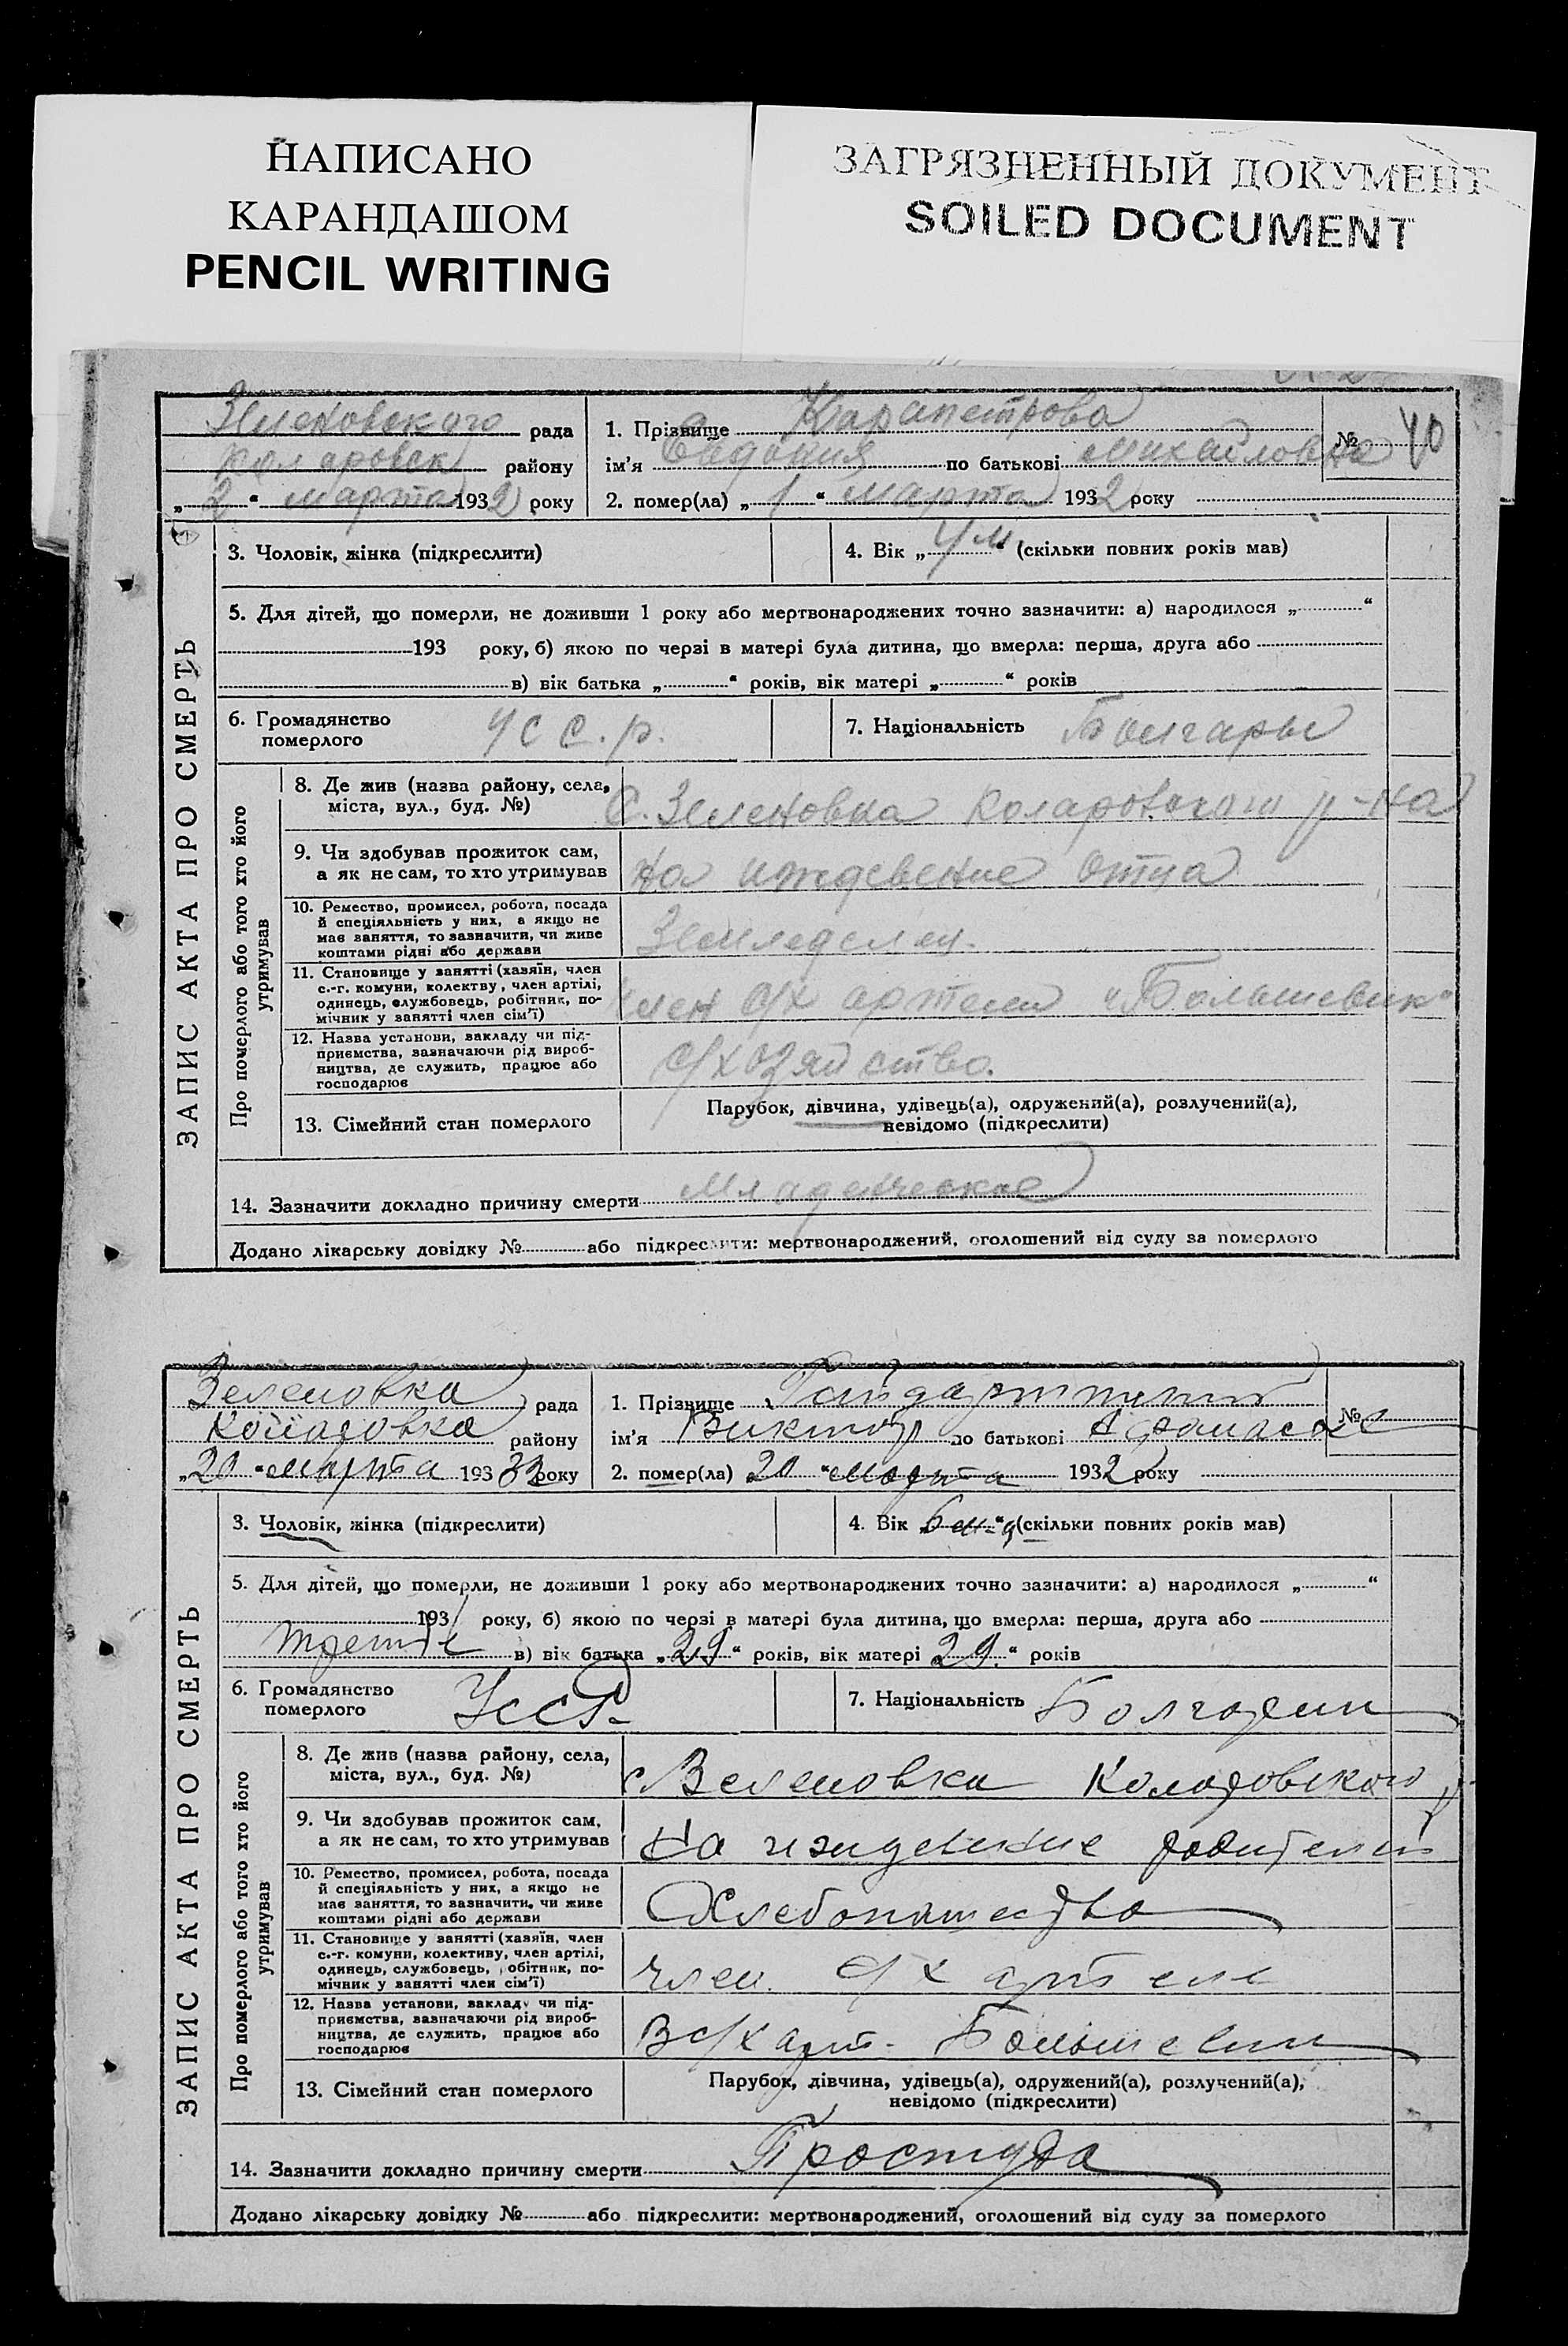 НАПИСАНО
КАРАНДАШОМ
PENCIL WRITING
ЗАГРЯЗНЕННЫЙ ДОКУМЕНТ
SOILED DOCUMENT
Зеленовского рада
Коларовск району
„2“ марта 1932 року
1. Прізвище Карапетрова
ім’я Евдокия по батькові Михайловна
2. помер(ла) „1“ марта 1932 року
№ 40
ЗАПИС АКТА ПРО СМЕРТЬ
3. Чоловік, жінка (підкреслити)
4. Вік „4 м“ (скільки повних років мав)
5. Для дітей, що померли, не доживши 1 року або мертвонароджених точно зазначити: а) народилося „ “
193 року, б) якою по черзі в матері була дитина, що вмерла: перша, друга або
в) вік батька „ “ років, вік матері „ “ років
6. Громадянство
померлого
УССР.
7. Національність Болгары
Про померлого або того хто його
утримував
8. Де жив (назва району, села,
міста, вул., буд. №)
С. Зеленовка Коларовского р-на
9. Чи здобував прожиток сам,
а як не сам, то хто утримував
на иждевение отца
10. Ремество, промисел, робота, посада
й спеціяльність у них, а якщо не
має заняття, то зазначити, чи живе
коштами рідні або держави
Земледелец.
11. Становище у занятті (хазяїн, член
с.-г. комуни, колектву, член артілі,
одинець, службовець, робітник, по-
мічник у занятті член сім’ї)
член с/х артели „Большевик“
12. Назва установи, закладу чи під-
приємства, зазначаючи рід вироб-
ництва, де служить, працює або
господарює
с/хозяйство.
13. Сімейний стан померлого
Парубок, дівчина, удівець(а), одружений(а), розлучений(а),
невідомо (підкреслити)
14. Зазначити докладно причину смерти Младенческое
Додано лікарську довідку № або підкреслити: мертвонароджений, оголошений від суду за померлого
Зеленовка рада
району
„20“ марта 193 року
1. Прізвище
ім’я Виктор по батькові
№
2. помер(ла) 20 “ марта 1932 року
ЗАПИС АКТА ПРО СМЕРТЬ
3. Чоловік, жінка (підкреслити)
4. Вік „ “ (скільки повних років мав)
5. Для дітей, що померли, не доживши 1 року або мертвонароджених точно зазначити: а) народилося „ “
193 року, б) якою по черзі в матері була дитина, що вмерла: перша, друга або
в) вік батька „29“ років, вік матері 29 “ років
6. Громадянство
померлого
УССР
7. Національність Болгарин
Про померлого або того хто його
утримував
8. Де жив (назва району, села,
міста, вул., буд. №)
с Зеленовка Коларовского р
9. Чи здобував прожиток сам,
а як не сам, то хто утримував
на родителей
10. Ремество, промисел, робота, посада
й спеціяльність у них, а якщо не
має заняття, то зазначити, чи живе
коштами рідні або держави
11. Становище у занятті (хазяїн, член
с.-г. комуни, колективу, член артілі,
одинець, службовець, робітник, по-
мічник у занятті член сім’ї)
член с/х артели
12. Назва установи, закладу чи під-
приємства, зазначаючи рід вироб-
ництва, де служить, працює або
господарює
В с/х арт. Большевик
13. Сімейний стан померлого
Парубок, дівчина, удівець(а), одружений(а), розлучений(а),
невідомо (підкреслити)
14. Зазначити докладно причину смерти Простуда
Додано лікарську довідку № або підкреслити: мертвонароджений, оголошений від суду за померлого